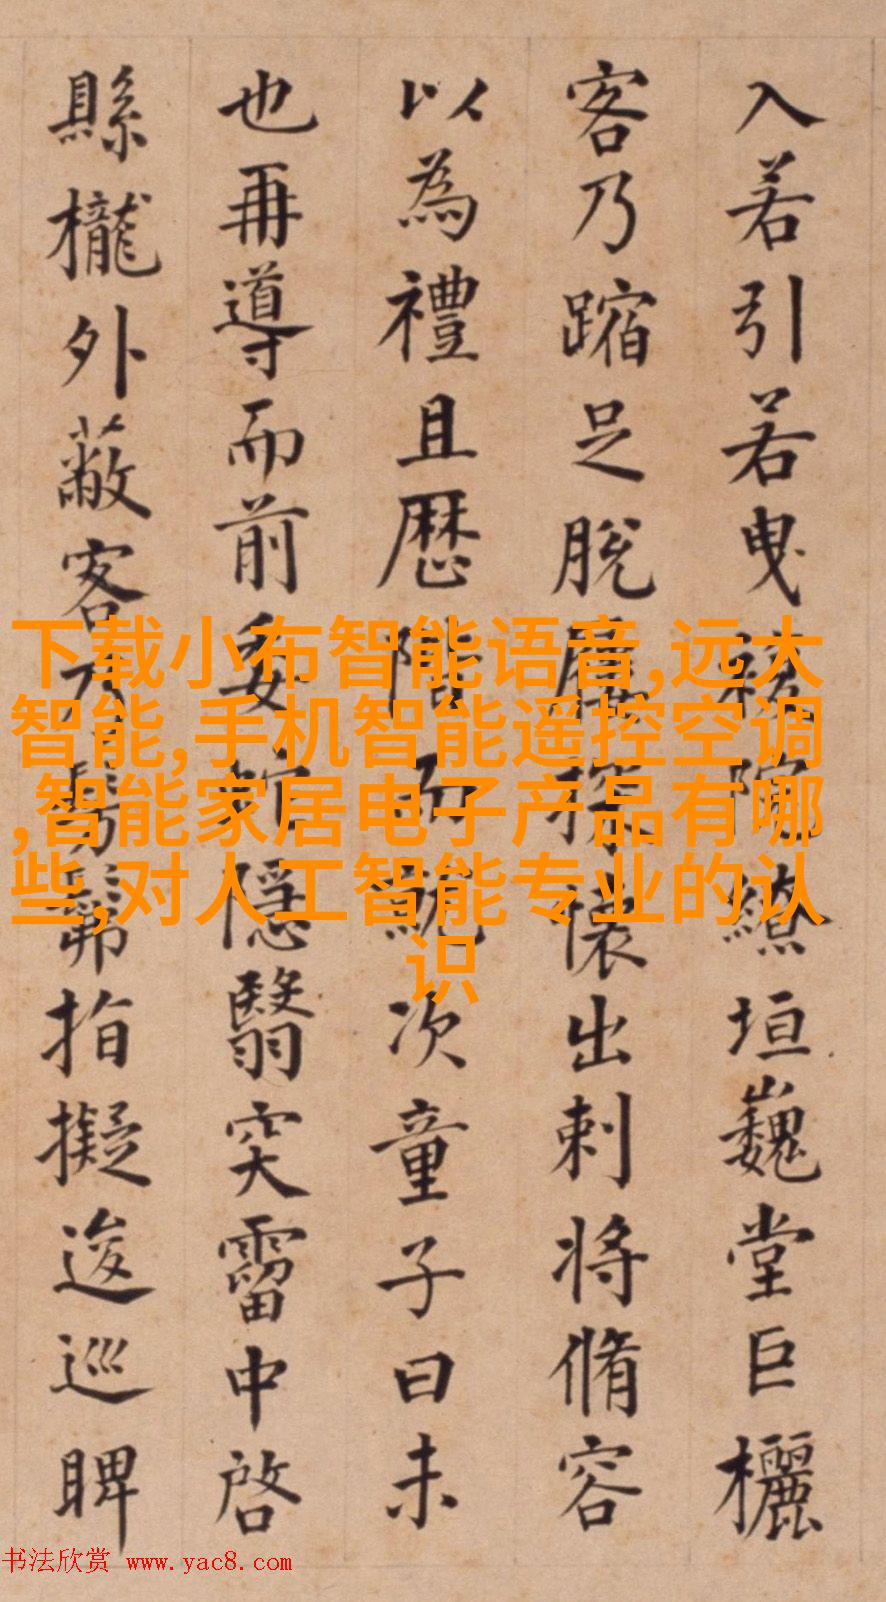 入若引若曳院繚垣巍堂巨欐
客乃蹜足脫屨探懷出刺將脩容
以為禮且歷階而就次童子曰未
也再導而前委蛇隱翳穾霤中啓
縣櫳外蔽客乃髣髴指擬逡巡睥
下载小布智能语音,远大
智能,手机智能遥控空调
,智能家居电子产品有哪
些,对人工智能专业的认
识
书法欣赏 www.yac8.com